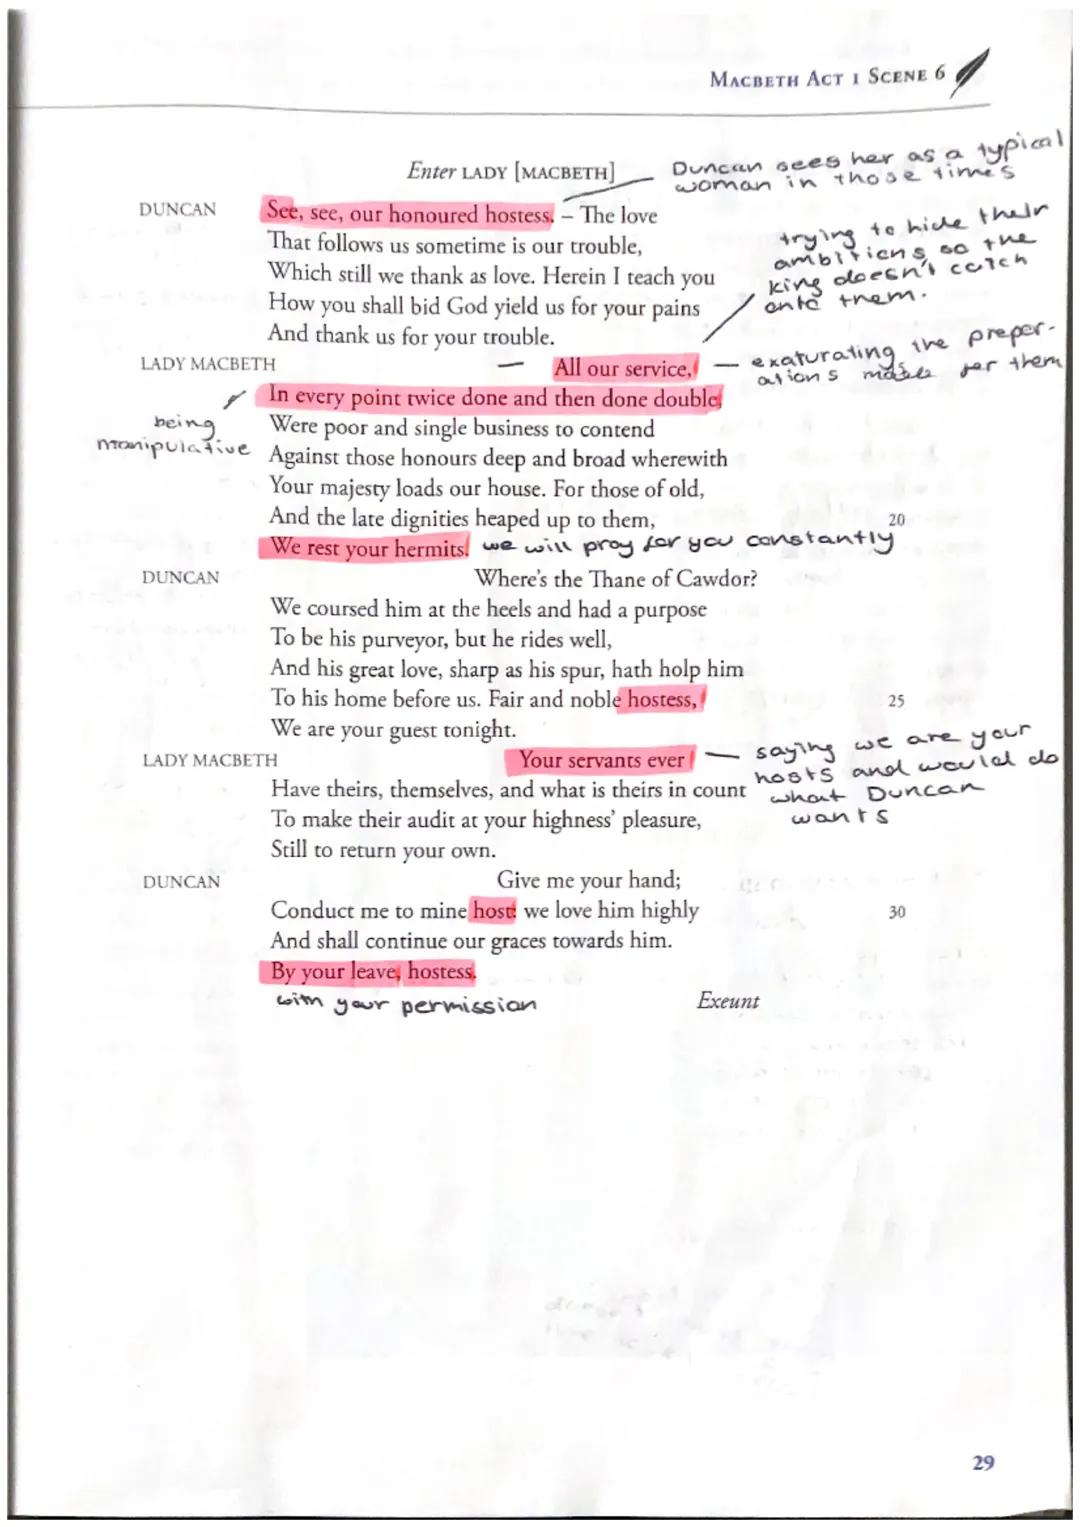 MACBETH ACT 1 SCENE 6
Enter LADY [MACBETH]
Duncan sees her as a typical
woman in those times
DUNCAN See, see, our honoured hostess. – The love
That follows us sometime is our trouble,
Which still we thank as love. Herein I teach you
How you shall bid God yield us for your pains
And thank us for your trouble.
trying to hide their
ambitions so the
king doesn't catch
onto them.
LADY MACBETH All our service,
exaturating the preper-
ations made for them
In every point twice done and then done double,
being
manipulative
Were poor and single business to contend
Against those honours deep and broad wherewith
Your majesty loads our house. For those of old,
And the late dignities heaped up to them, 20
We rest your hermits. we will pray for you constantly
DUNCAN Where's the Thane of Cawdor?
We coursed him at the heels and had a purpose
To be his purveyor, but he rides well,
And his great love, sharp as his spur, hath holp him
To his home before us. Fair and noble hostess, 25
We are your guest tonight.
LADY MACBETH Your servants ever
saying we are your
hosts and would do
what Duncan
wants
Have theirs, themselves, and what is theirs in count
To make their audit at your highness' pleasure,
Still to return your own.
DUNCAN Give me your hand;
Conduct me to mine host: we love him highly 30
And shall continue our graces towards him.
By your leave, hostess.
with your permission
Exeunt
29